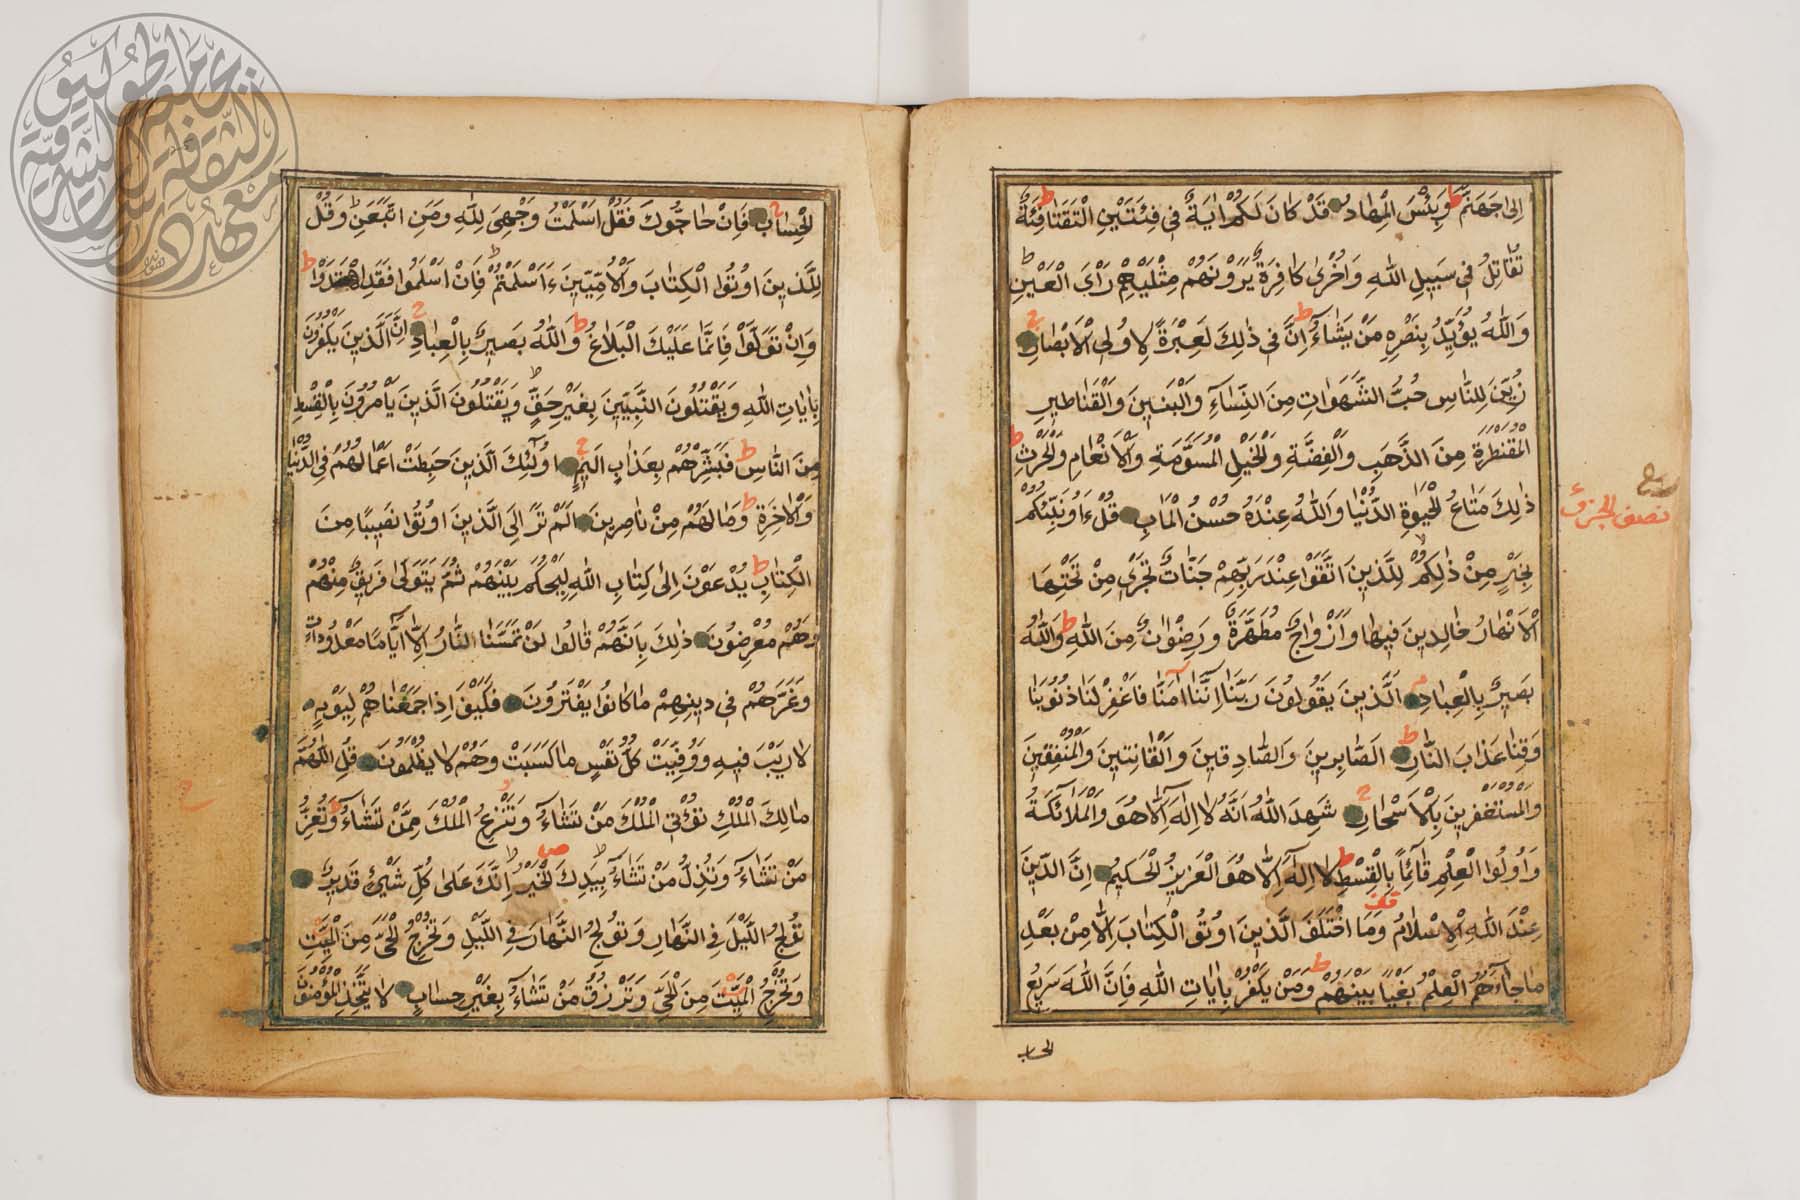 اِلٰى جَهَنَّمَ وَبِئْسَ الْمِهَادُ قَدْ كَانَ لَكُمْ اٰيَةٌ فِي فِئَتَيْنِ الْتَقَتَا فِئَةٌ
تُقَاتِلُ فِي سَبِيلِ اللّٰهِ وَاُخْرٰى كَافِرَةٌ يَرَوْنَهُمْ مِثْلَيْهِمْ رَأْىَ الْعَيْنِ
وَاللّٰهُ يُؤَيِّدُ بِنَصْرِهِ مَنْ يَشَاءُ اِنَّ فِي ذٰلِكَ لَعِبْرَةً لِاُولِي الْاَبْصَارِ
زُيِّنَ لِلنَّاسِ حُبُّ الشَّهَوَاتِ مِنَ النِّسَاءِ وَالْبَنِينَ وَالْقَنَاطِيرِ
الْمُقَنْطَرَةِ مِنَ الذَّهَبِ وَالْفِضَّةِ وَالْخَيْلِ الْمُسَوَّمَةِ وَالْاَنْعَامِ وَالْحَرْثِ
ذٰلِكَ مَتَاعُ الْحَيٰوةِ الدُّنْيَا وَاللّٰهُ عِنْدَهُ حُسْنُ الْمَاٰبِ قُلْ ءَاَؤُنَبِّئُكُمْ
نصف الجزء
بِخَيْرٍ مِنْ ذٰلِكُمْ لِلَّذِينَ اتَّقَوْا عِنْدَ رَبِّهِمْ جَنَّاتٌ تَجْرِي مِنْ تَحْتِهَا
الْاَنْهَارُ خَالِدِينَ فِيهَا وَاَزْوَاجٌ مُطَهَّرَةٌ وَرِضْوَانٌ مِنَ اللّٰهِ وَاللّٰهُ
بَصِيرٌ بِالْعِبَادِ اَلَّذِينَ يَقُولُونَ رَبَّنَا اِنَّنَا اٰمَنَّا فَاغْفِرْ لَنَا ذُنُوبَنَا
وَقِنَا عَذَابَ النَّارِ اَلصَّابِرِينَ وَالصَّادِقِينَ وَالْقَانِتِينَ وَالْمُنْفِقِينَ
وَالْمُسْتَغْفِرِينَ بِالْاَسْحَارِ شَهِدَ اللّٰهُ اَنَّهُ لَا اِلٰهَ اِلَّا هُوَ وَالْمَلٰٓئِكَةُ
وَاُولُوا الْعِلْمِ قَائِمًا بِالْقِسْطِ لَا اِلٰهَ اِلَّا هُوَ الْعَزِيزُ الْحَكِيمُ اِنَّ الدِّينَ
عِنْدَ اللّٰهِ الْاِسْلَامُ وَمَا اخْتَلَفَ الَّذِينَ اُوتُوا الْكِتَابَ اِلَّا مِنْ بَعْدِ
مَا جَاءَهُمُ الْعِلْمُ بَغْيًا بَيْنَهُمْ وَمَنْ يَكْفُرْ بِاٰيَاتِ اللّٰهِ فَاِنَّ اللّٰهَ سَرِيعُ
الحساب
الْحِسَابِ فَاِنْ حَاجُّوكَ فَقُلْ اَسْلَمْتُ وَجْهِيَ لِلّٰهِ وَمَنِ اتَّبَعَنِ وَقُلْ
لِلَّذِينَ اُوتُوا الْكِتَابَ وَالْاُمِّيِّينَ ءَاَسْلَمْتُمْ فَاِنْ اَسْلَمُوا فَقَدِ اهْتَدَوْا
وَاِنْ تَوَلَّوْا فَاِنَّمَا عَلَيْكَ الْبَلَاغُ وَاللّٰهُ بَصِيرٌ بِالْعِبَادِ اِنَّ الَّذِينَ يَكْفُرُونَ
بِاٰيَاتِ اللّٰهِ وَيَقْتُلُونَ النَّبِيِّينَ بِغَيْرِ حَقٍّ وَيَقْتُلُونَ الَّذِينَ يَأْمُرُونَ بِالْقِسْطِ
مِنَ النَّاسِ فَبَشِّرْهُمْ بِعَذَابٍ اَلِيمٍ اُولٰئِكَ الَّذِينَ حَبِطَتْ اَعْمَالُهُمْ فِي الدُّنْيَا
وَالْاٰخِرَةِ وَمَا لَهُمْ مِنْ نَاصِرِينَ اَلَمْ تَرَ اِلَى الَّذِينَ اُوتُوا نَصِيبًا مِنَ
الْكِتَابِ يُدْعَوْنَ اِلٰى كِتَابِ اللّٰهِ لِيَحْكُمَ بَيْنَهُمْ ثُمَّ يَتَوَلّٰى فَرِيقٌ مِنْهُمْ
وَهُمْ مُعْرِضُونَ ذٰلِكَ بِاَنَّهُمْ قَالُوا لَنْ تَمَسَّنَا النَّارُ اِلَّا اَيَّامًا مَعْدُودَاتٍ
وَغَرَّهُمْ فِي دِينِهِمْ مَا كَانُوا يَفْتَرُونَ فَكَيْفَ اِذَا جَمَعْنَاهُمْ لِيَوْمٍ
لَا رَيْبَ فِيهِ وَوُفِّيَتْ كُلُّ نَفْسٍ مَا كَسَبَتْ وَهُمْ لَا يُظْلَمُونَ قُلِ اللّٰهُمَّ
مَالِكَ الْمُلْكِ تُؤْتِي الْمُلْكَ مَنْ تَشَاءُ وَتَنْزِعُ الْمُلْكَ مِمَّنْ تَشَاءُ وَتُعِزُّ
مَنْ تَشَاءُ وَتُذِلُّ مَنْ تَشَاءُ بِيَدِكَ الْخَيْرُ اِنَّكَ عَلٰى كُلِّ شَيْئٍ قَدِيرٌ
تُولِجُ اللَّيْلَ فِي النَّهَارِ وَتُولِجُ النَّهَارَ فِي اللَّيْلِ وَتُخْرِجُ الْحَيَّ مِنَ الْمَيِّتِ
وَتُخْرِجُ الْمَيِّتَ مِنَ الْحَيِّ وَتَرْزُقُ مَنْ تَشَاءُ بِغَيْرِ حِسَابٍ لَا يَتَّخِذِ الْمُؤْمِنُونَ